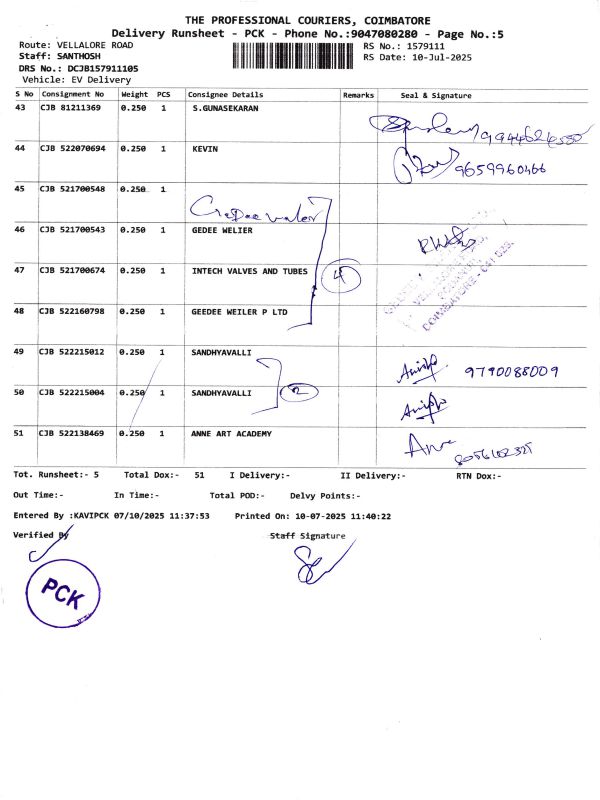 THE PROFESSIONAL COURIERS, COIMBATORE
Delivery Runsheet - PCK - Phone No.:9047080280 - Page No.:5
Route: VELLALORE ROAD RS No.: 1579111
Staff: SANTHOSH RS Date: 10-Jul-2025
DRS No.: DCJB157911105
Vehicle: EV Delivery
S No Consignment No Weight PCS Consignee Details Remarks Seal & Signature
43 CJB 81211369 0.250 1 S.GUNASEKARAN
44 CJB 522070694 0.250 1 KEVIN 9659960466
45 CJB 521700548 0.250 1
46 CJB 521700543 0.250 1 GEDEE WELIER
47 CJB 521700674 0.250 1 INTECH VALVES AND TUBES 4
48 CJB 522160798 0.250 1 GEEDEE WEILER P LTD
49 CJB 522215012 0.250 1 SANDHYAVALLI 9790088009
50 CJB 522215004 0.250 1 SANDHYAVALLI 2
51 CJB 522138469 0.250 1 ANNE ART ACADEMY
Tot. Runsheet:- 5 Total Dox:- 51 I Delivery:- II Delivery:- RTN Dox:-
Out Time:- In Time:- Total POD:- Delvy Points:-
Entered By :KAVIPCK 07/10/2025 11:37:53 Printed On: 10-07-2025 11:40:22
Verified By Staff Signature
PCK